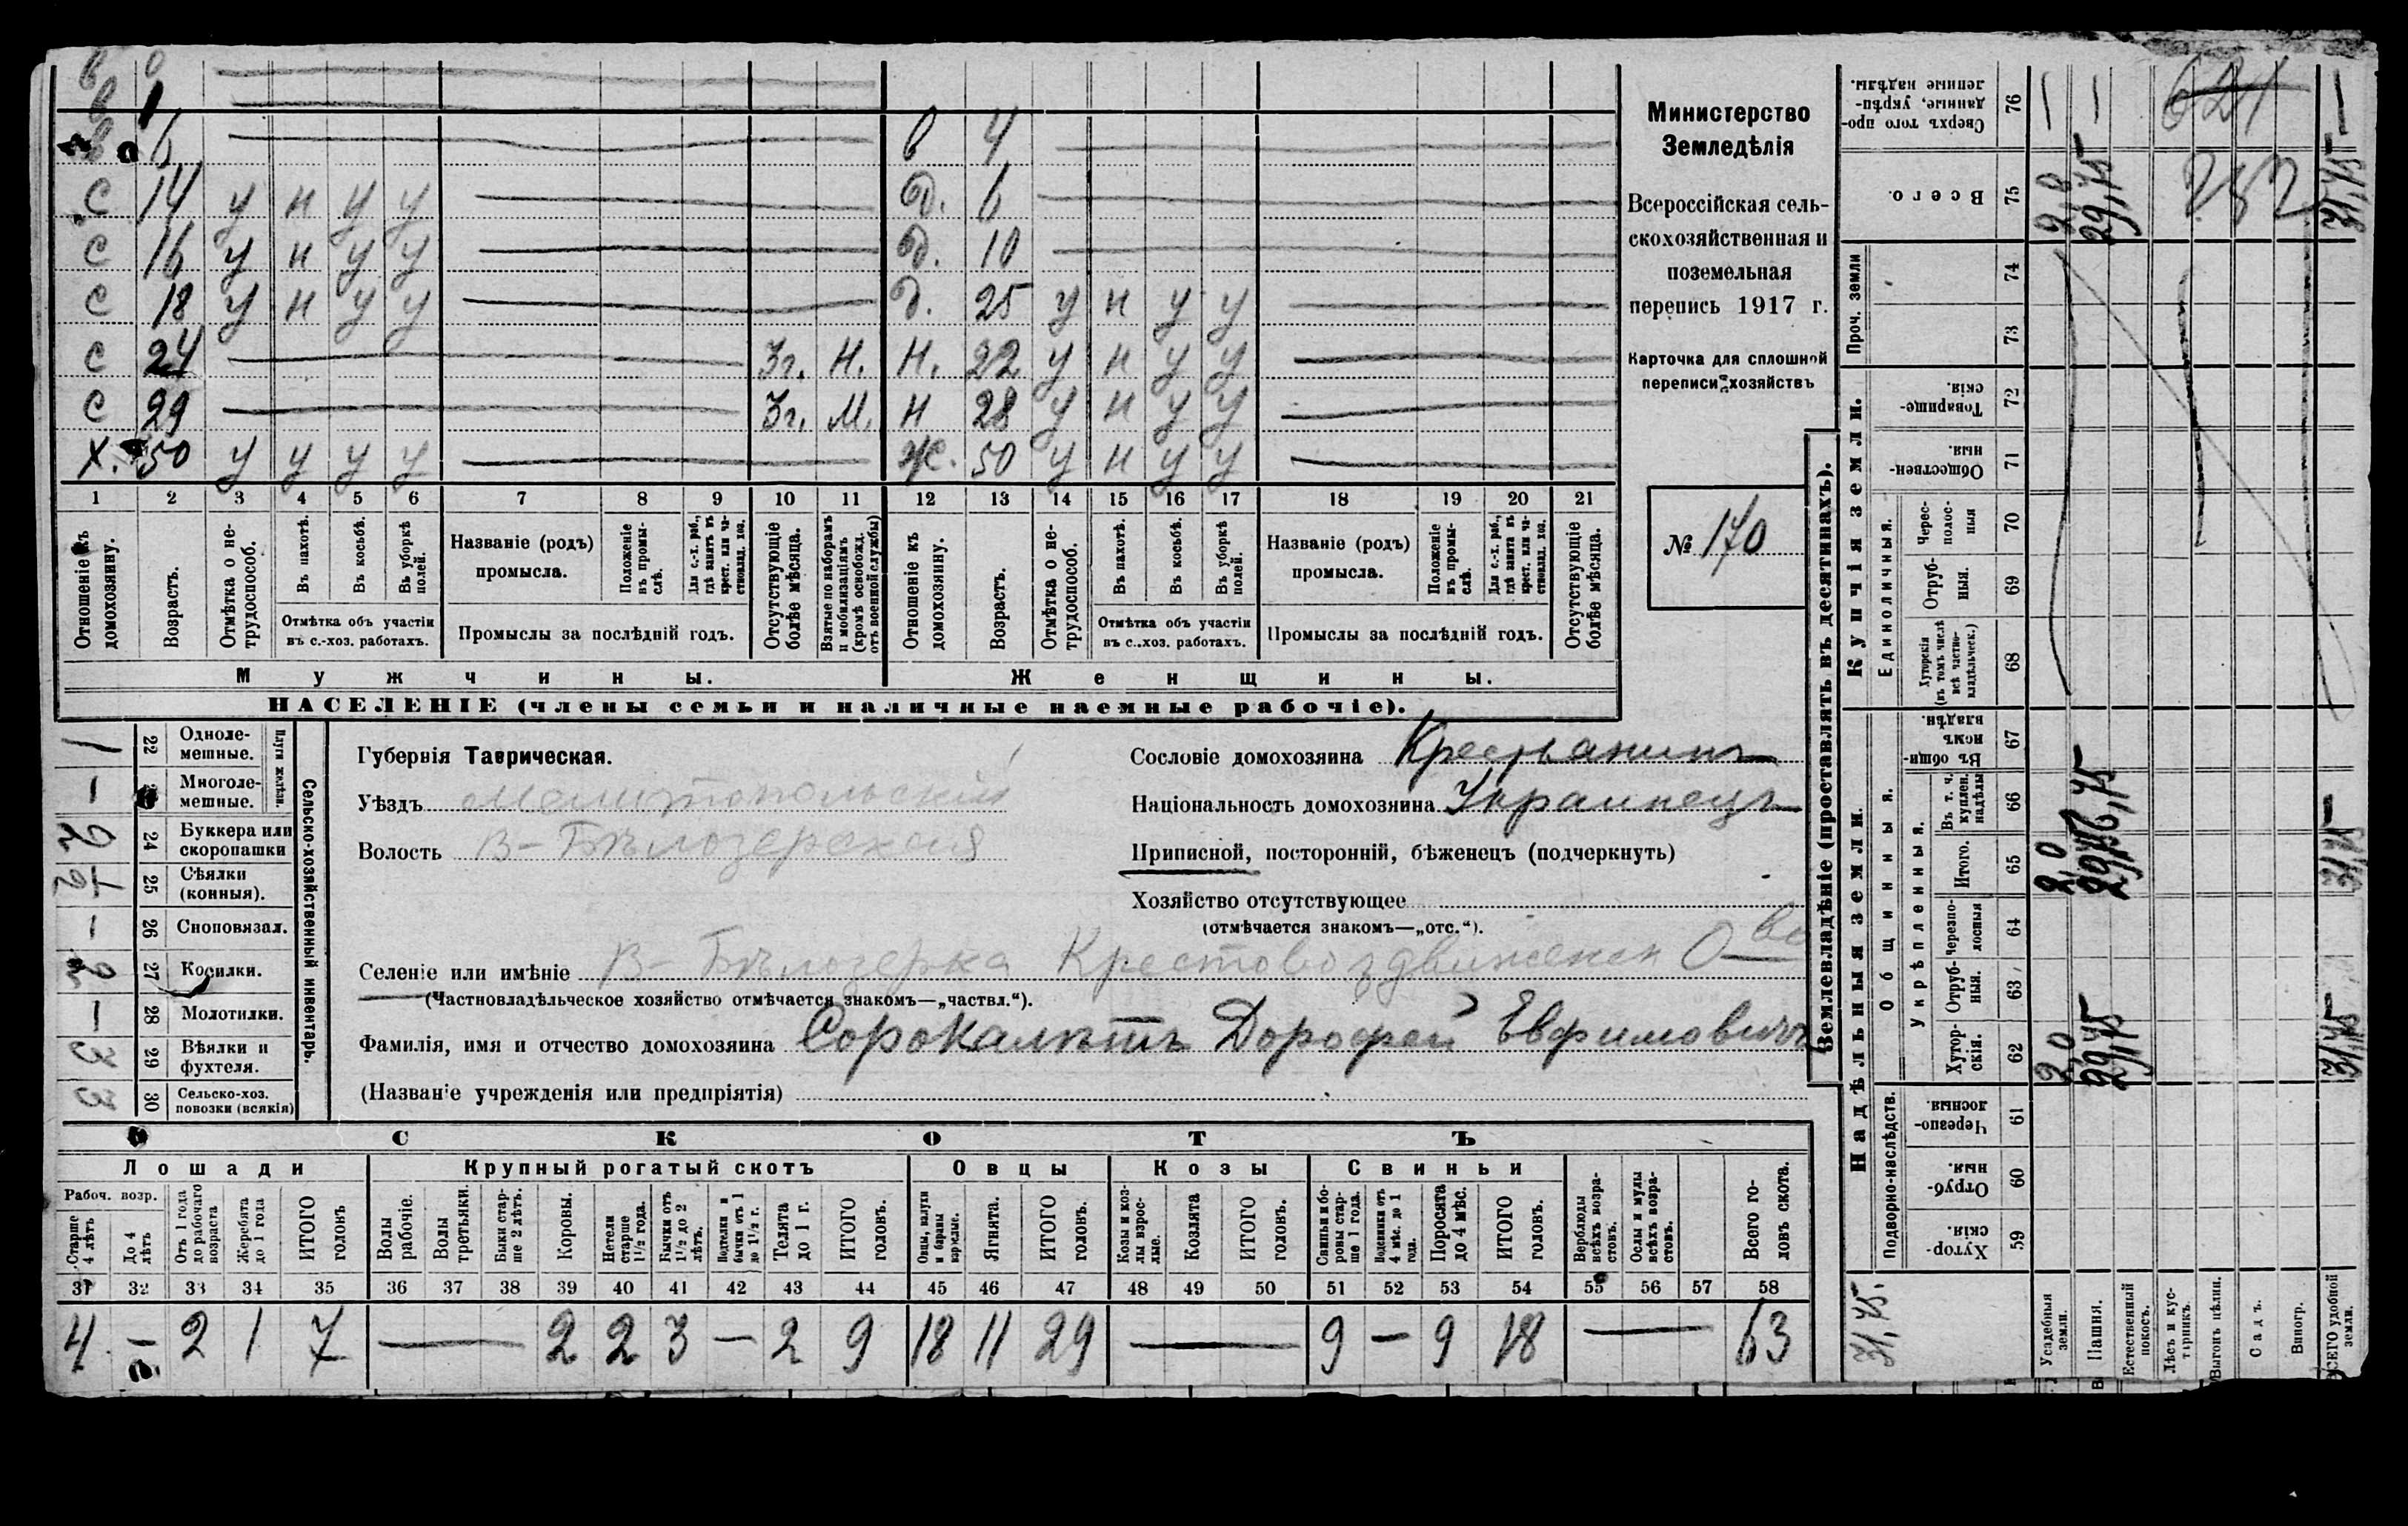 в 0
в 1
в 6 в 4
с 14 у н у у д. 6
с 16 у н у у д. 10
с 18 у н у у д. 25 у н у у
с 24 3г. Н. Н. 22 у н у у
с 29 3г. М. Н 28 у н у у
Х. 50 у у у у Ж. 50 у н у у
1 2 3 4 5 6 7 8 9 10 11 12 13 14 15 16 17 18 19 20 21
Отношеніе къ домохозяину.
Возрастъ.
Отмѣтка о нетрудоспособ.
Въ пахотѣ.
Въ косьбѣ.
Въ уборкѣ полей.
Отмѣтка объ участіи
въ с.-хоз. работахъ.
Названіе (родъ)
промысла.
Положеніе въ промыслѣ.
Для с.-х. раб., гдѣ занятъ въ крест. или частновлад. хоз.
Промыслы за послѣдній годъ.
Отсутствующіе болѣе мѣсяца.
Взятые по наборамъ и мобилизаціямъ (кромѣ освобожд. отъ военной службы)
Отношеніе къ домохозяину.
Возрастъ.
Отмѣтка о нетрудоспособ.
Въ пахотѣ.
Въ косьбѣ.
Въ уборкѣ полей.
Отмѣтка объ участіи
въ с.-хоз. работахъ.
Названіе (родъ)
промысла.
Положеніе въ промыслѣ.
Для с.-х. раб., гдѣ занята въ крест. или частновлад. хоз.
Промыслы за послѣдній годъ.
Отсутствующіе болѣе мѣсяца.
Мужчины. Женщины.
НАСЕЛЕНІЕ (члены семьи и наличные наемные рабочіе).
Министерство
Земледѣлія
Всероссійская сель-
скохозяйственная и
поземельная
перепись 1917 г.
Карточка для сплошной
переписи хозяйствъ
№ 170
Сельско-хозяйственный инвентарь.
Плуги желѣзн.
1 22 Одноле-
мешные.
— Многоле-
мешные.
2 24 Буккера или
скоропашки
1/2 25 Сѣялки
(конныя).
— 26 Сноповязал.
2 27 Косилки.
— 28 Молотилки.
3 29 Вѣялки и
фухтеля.
3 30 Сельско-хоз.
повозки (всякія)
Губернія Таврическая.
Уѣздъ Мелитопольскій
Волость В-Бѣлозерская
Сословіе домохозяина Крестьянинъ
Національность домохозяина Украинецъ
Приписной, посторонній, бѣженецъ (подчеркнуть)
Хозяйство отсутствующее
(отмѣчается знакомъ—„отс.“).
Селеніе или имѣніе В-Бѣлозерка Крестовоздвиженск О-во
(Частновладѣльческое хозяйство отмѣчается знакомъ—„частвл.“).
Фамилія, имя и отчество домохозяина Сорокалѣтъ Дорофей Евфимовичъ
(Названіе учрежденія или предпріятія)
СКОТЪ
Лошади Крупный рогатый скотъ Овцы Козы Свиньи
Рабоч. возр.
Старше 4 лѣтъ
До 4 лѣтъ
Отъ 1 года до рабочаго возраста
Жеребята до 1 года
ИТОГО головъ
Волы рабочіе.
Волы третьяки.
Быки старше 2 лѣтъ.
Коровы.
Нетели старше 1½ года.
Бычки отъ 1½ до 2 лѣтъ.
Подтелки и бычки отъ 1 до 1½ г.
Телята до 1 г.
ИТОГО головъ.
Овцы, валухи и бараны взрослые.
Ягнята.
ИТОГО головъ.
Козы и козлы взрослые.
Козлята
ИТОГО головъ.
Свиньи и боровы старше 1 года.
Подсвинки отъ 4 мѣс. до 1 года.
Поросята до 4 мѣс.
ИТОГО головъ.
Верблюды всѣхъ возрастовъ.
Ослы и мулы всѣхъ возрастовъ.
Всего головъ скота.
31 32 33 34 35 36 37 38 39 40 41 42 43 44 45 46 47 48 49 50 51 52 53 54 55 56 57 58
4 — 2 1 7 — 2 2 3 — 2 9 18 11 29 — 9 — 9 18 — 63
Землевладѣніе (проставлять въ десятинахъ).
Надѣльныя земли. Купчія земли. Проч. земли
Подворно-наслѣдств. Общинныя. Укрѣпленныя. Единоличныя.
Сверхъ того проданные, укрѣпленные надѣлы. 76 — — 621 —
Всего. 75 2,0 29,45 252 31,45
74
73
Товарищескія. 72
Общественныя. 71
Чересполосныя 70
Отрубныя. 69
Хуторскія (въ томъ числѣ всѣ частновладѣльческ.) 68
Въ общинномъ владѣн. 67
Въ т. ч. куплен. надѣлы 66
Итого. 65 2,0 31,45
Черезполосныя 64
Отрубныя. 63
Хуторскія. 62 2,0 29,45 31,45
Черезполосныя. 61
Отрубныя. 60
Хуторскія. 59
31,45.
Усадебныя земли.
Пашня.
Естественный покосъ.
Лѣсъ и кустарникъ.
Выгонъ цѣлин.
Садъ.
Виногр.
ВСЕГО удобной земли.